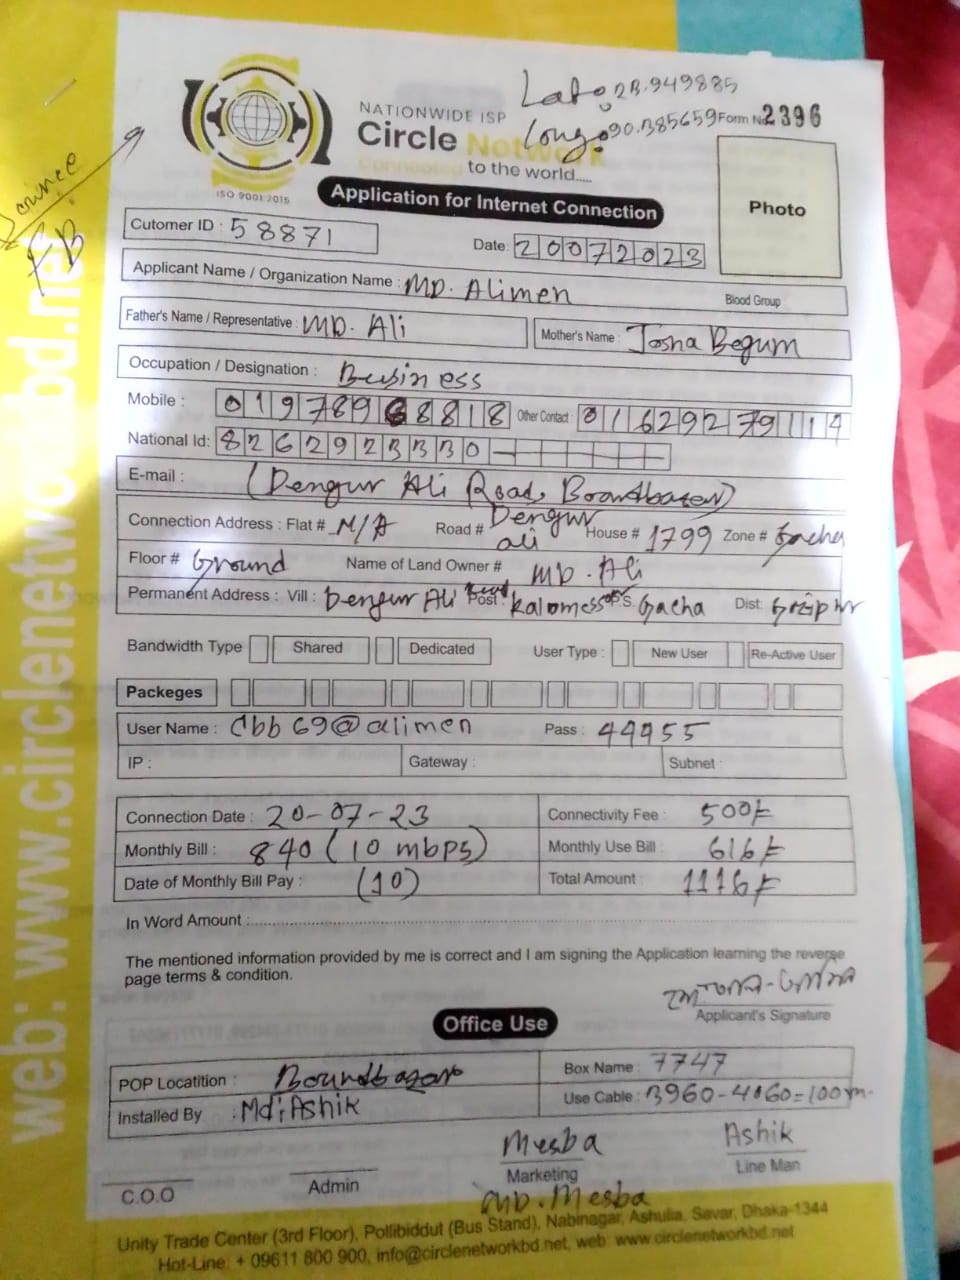 Lat: 23.949885
NATIONWIDE ISP
Circle Network
Long: 90.385659 Form No 2396
to the world.....
ISO 9001:2015
Application for Internet Connection
Photo
FB
Cutomer ID : 58871
Date: 20072023
Applicant Name / Organization Name : MD. Alimen
Blood Group
Father's Name / Representative : MD. Ali
Mother's Name : Josna Begum
Occupation / Designation : Business
Mobile : 01978968818 Other Contact : 01629279114
National Id: 8262923330
E-mail :
(Dengur Ali Road, Boardbazar)
Connection Address : Flat # N/A Road # Dengur ali House # 1799 Zone # Gacha
Floor # Ground Name of Land Owner # MD. Ali
Permanent Address : Vill : Dengur Ali Road Post : P.S. Gacha Dist: Gazipur
Bandwidth Type Shared Dedicated User Type : New User Re-Active User
Packeges
User Name : Cbb69@alimen Pass : 44955
IP : Gateway : Subnet :
Connection Date : 20-07-23 Connectivity Fee : 500/=
Monthly Bill : 840 (10 mbps) Monthly Use Bill : 616/=
Date of Monthly Bill Pay : (10) Total Amount : 1116/=
In Word Amount :
The mentioned information provided by me is correct and I am signing the Application learning the reverse
page terms & condition.
Applicant's Signature
Office Use
POP Locatition : Boardbazar Box Name : 7747
Installed By : Md: Ashik Use Cable : 3960-4060=100m.
Mesba Ashik
C.O.O Admin Marketing Line Man
MD. Mesba
Unity Trade Center (3rd Floor), Pollibiddut (Bus Stand), Nabinagar, Ashulia, Savar, Dhaka-1344
Hot-Line: + 09611 800 900, info@circlenetworkbd.net, web: www.circlenetworkbd.net
web: www.circlenetworkbd.net